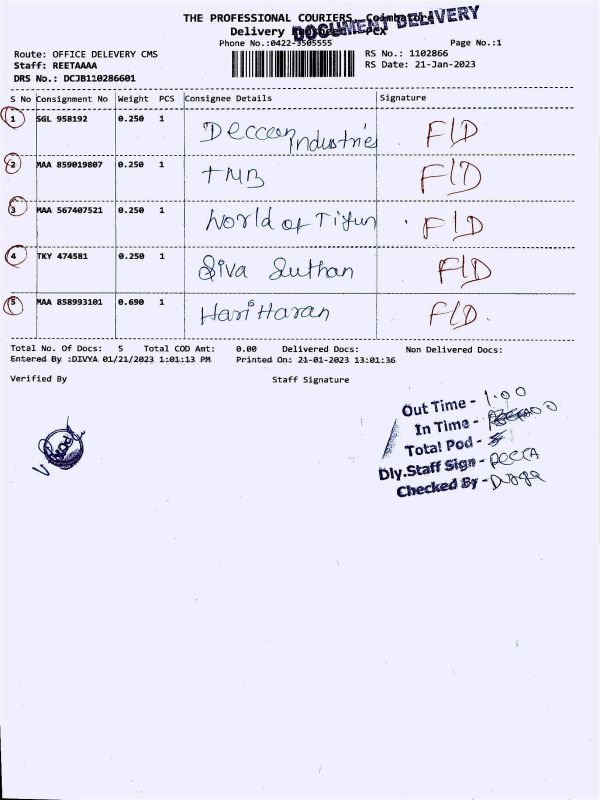 THE PROFESSIONAL COURIERS, Coimbatore
DOCUMENT DELIVERY
Delivery PCX
Phone No.:0422-3505555
Page No.:1
Route: OFFICE DELEVERY CMS
RS No.: 1102866
Staff: REETAAAA
RS Date: 21-Jan-2023
DRS No.: DCJB110286601
S No Consignment No Weight PCS Consignee Details Signature
1 SGL 958192 0.250 1 Deccan Industries F/D
2 MAA 859019807 0.250 1 TMB F/D
3 MAA 567407521 0.250 1 World of Tifun F/D
4 TKY 474581 0.250 1 Siva Suthan F/D
5 MAA 858993101 0.690 1 Hari Haran F/D.
Total No. Of Docs: 5 Total COD Amt: 0.00 Delivered Docs: Non Delivered Docs:
Entered By :DIVYA 01/21/2023 1:01:13 PM Printed On: 21-01-2023 13:01:36
Verified By Staff Signature
Out Time - 1.00
In Time -
Total Pod - 5
Dly.Staff Sign -
Checked By -